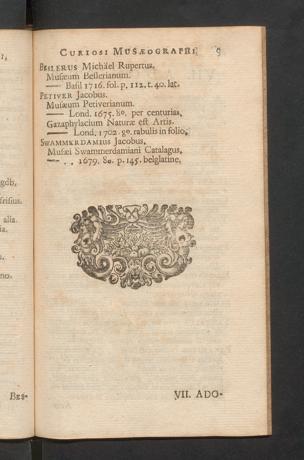 CURIOSI MUSÆOGRAPHI. 9
BESLERUS Michäel Rupertus.
Musæum Beslerianum.
—— Basil 1716. fol. p. 112. t. 40. lat.
PETIVER Jacobus.
Musæum Petiverianum.
—— Lond. 1675. 8o. per centurias.
Gazaphylacium Naturæ est Artis.
—— Lond. 1702. 8o. tabulis in folio.
SWAMMERDAMIUS Jacobus.
Musæi Swammerdamiani Catalagus,
—— . . 1679. 8o. p. 145. belglatine,
VII. ADO-
gdb,
frisius.
alia.
no.
BES-